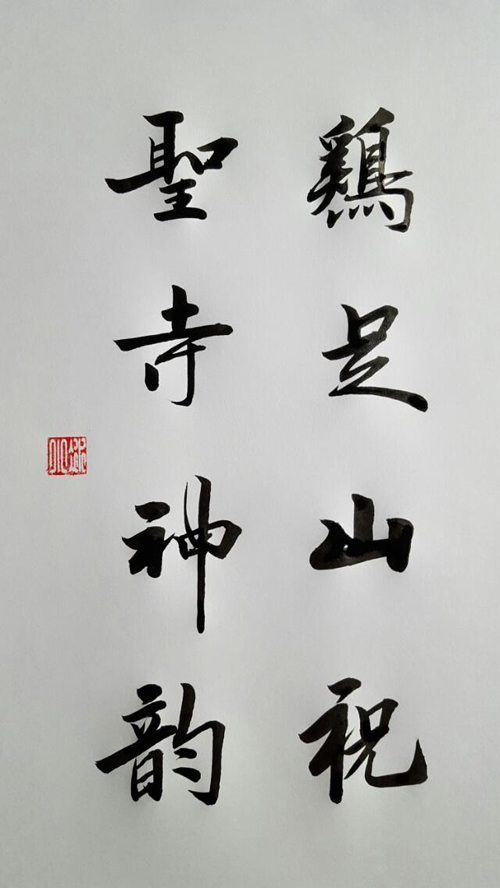 鷄足山祝
聖寺神韵